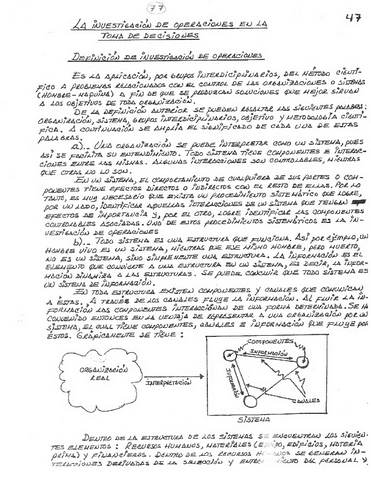 77
47
LA INVESTIGACIÓN DE OPERACIONES EN LA
TOMA DE DECISIONES
DEFINICIÓN DE INVESTIGACIÓN DE OPERACIONES
ES LA APLICACIÓN, POR GRUPOS INTERDICIPLINARIOS, DEL MÉTODO CIENTÍ-
FICO A PROBLEMAS RELACIONADOS CON EL CONTROL DE LAS ORGANIZACIONES O SISTEMAS
(HOMBRE-MÁQUINA) A FIN DE QUE SE PRODUZCAN SOLUCIONES QUE MEJOR SIRVAN
A LOS OBJETIVOS DE TODA ORGANIZACIÓN.
DE LA DEFINICIÓN ANTERIOR SE PUEDEN RESALTAR LAS SIGUIENTES PALABRAS:
ORGANIZACIÓN, SISTEMA, GRUPOS INTERDICIPLINARIOS, OBJETIVO Y METODOLOGÍA CIENTÍ-
FICA. A CONTINUACIÓN SE AMPLÍA EL SIGNIFICADO DE CADA UNA DE ESTAS
PALABRAS.
a).- UNA ORGANIZACIÓN SE PUEDE INTERPRETAR COMO UN SISTEMA, PUES
ASÍ SE FACILITA SU ENTENDIMIENTO. TODO SISTEMA TIENE COMPONENTES E INTERAC-
CIONES ENTRE LAS MISMAS. ALGUNAS INTERACCIONES SON CONTROLABLES, MIENTRAS
QUE OTRAS NO LO SON.
EN UN SISTEMA, EL COMPORTAMIENTO DE CUALQUIERA DE SUS PARTES O COM-
PONENTES TIENE EFECTOS DIRECTOS O INDIRECTOS CON EL RESTO DE ELLAS. POR LO
TANTO, ES MUY NECESARIO QUE EXISTA UN PROCEDIMIENTO SISTEMÁTICO QUE LOGRE,
POR UN LADO, IDENTIFICAR AQUELLAS INTERACCIONES DE UN SISTEMA QUE TENGAN
EFECTOS DE IMPORTANCIA Y, POR EL OTRO, LOGRE IDENTIFICAR LAS COMPONENTES
CONTROLABLES ASOCIADAS. UNO DE ESTOS PROCEDIMIENTOS SISTEMÁTICOS ES LA IN-
VESTIGACIÓN DE OPERACIONES
b).- TODO SISTEMA ES UNA ESTRUCTURA QUE FUNCIONA. ASÍ POR EJEMPLO, UN
HOMBRE VIVO ES UN SISTEMA, MIENTRAS QUE ESE MISMO HOMBRE, PERO MUERTO,
NO ES UN SISTEMA, SINO SIMPLEMENTE UNA ESTRUCTURA. LA INFORMACIÓN ES EL
ELEMENTO QUE CONVIERTE A UNA ESTRUCTURA EN UN SISTEMA, ES DECIR, LA INFOR-
MACIÓN DINAMIZA A LAS ESTRUCTURAS. SE PUEDE CONCLUIR QUE TODO SISTEMA ES
UN SISTEMA DE INFORMACIÓN.
EN TODA ESTRUCTURA EXISTEN COMPONENTES Y CANALES QUE COMUNICAN
A ÉSTAS. A TRAVÉS DE LOS CANALES FLUYE LA INFORMACIÓN. AL FLUIR LA IN-
FORMACIÓN LAS COMPONENTES INTERACCIONAN DE UNA FORMA DETERMINADA. SE HA
CONVENIDO ENTONCES EN LA VENTAJA DE REPRESENTAR A UNA ORGANIZACIÓN POR UN
SISTEMA, EL CUAL TIENE COMPONENTES, CANALES E INFORMACIÓN QUE FLUYE POR
ÉSTOS. GRÁFICAMENTE SE TIENE:
COMPONENTES
INFORMACIÓN
ORGANIZACIÓN
REAL
INTERPRETACIÓN
INFORMACIÓN
CANALES
SISTEMA
DENTRO DE LA ESTRUCTURA DE LOS SISTEMAS SE ENCUENTRAN LOS SIGUIEN-
TES ELEMENTOS: RECURSOS HUMANOS, MATERIALES (EQUIPO, EDIFICIOS, MATERIA
PRIMA) Y FINANCIEROS. DENTRO DE LOS RECURSOS HUMANOS SE GENERAN IN-
TERACCIONES DERIVADAS DE LA SELECCIÓN Y DEL PERSONAL Y